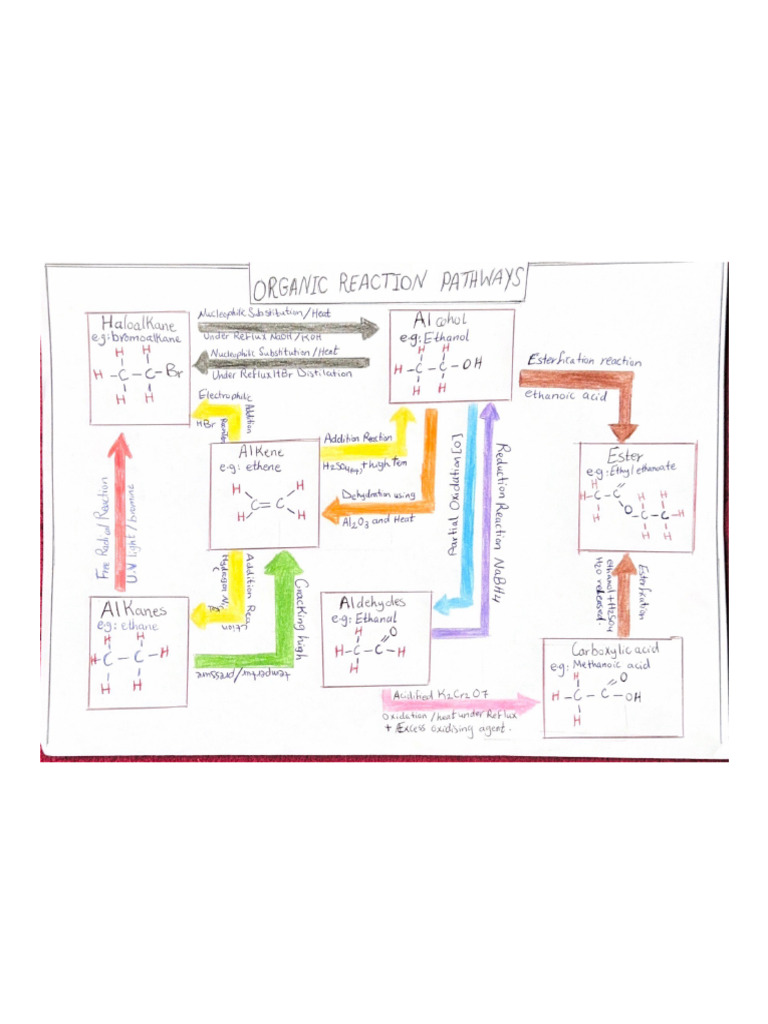 ORGANIC REACTION PATHWAYS
Haloalkane
eg: bromoalkane
H H
H - C - C - Br
H H
Nucleophilic Substitution/Heat
Under Reflux NaOH/KOH
Nucleophilic Substitution/Heat
Under Reflux HBr Distilation
Alcohol
eg: Ethanol
H H
H - C - C - OH
H H
Esterfication reaction
ethanoic acid
Electrophilic
Addition
HBr
Alkene
e.g: ethene
H H
C = C
H H
Addition Reaction
H2SO4(aq) + high Tem
Dehydration using
Al2O3 and Heat
Partial Oxidation [O]
Reduction Reaction NaBH4
Ester
e.g: Ethyl ethanoate
H - C - C
O H H
C - C - H
H H
Free Radical Reaction
U.V light / bromine
Alkanes
eg: ethane
H H
H - C - C - H
H H
Addition Reaction
Cracking high
tempertur/pressure
Aldehydes
e.g: Ethanal
H O
H - C - C - H
H
Acidified K2Cr2O7
Oxidation/heat under Reflux
+ Excess oxidising agent.
Esterfication
ethanol + H2SO4
H2O released.
Carboxylic acid
eg: Methanoic acid
H O
H - C - C - OH
H